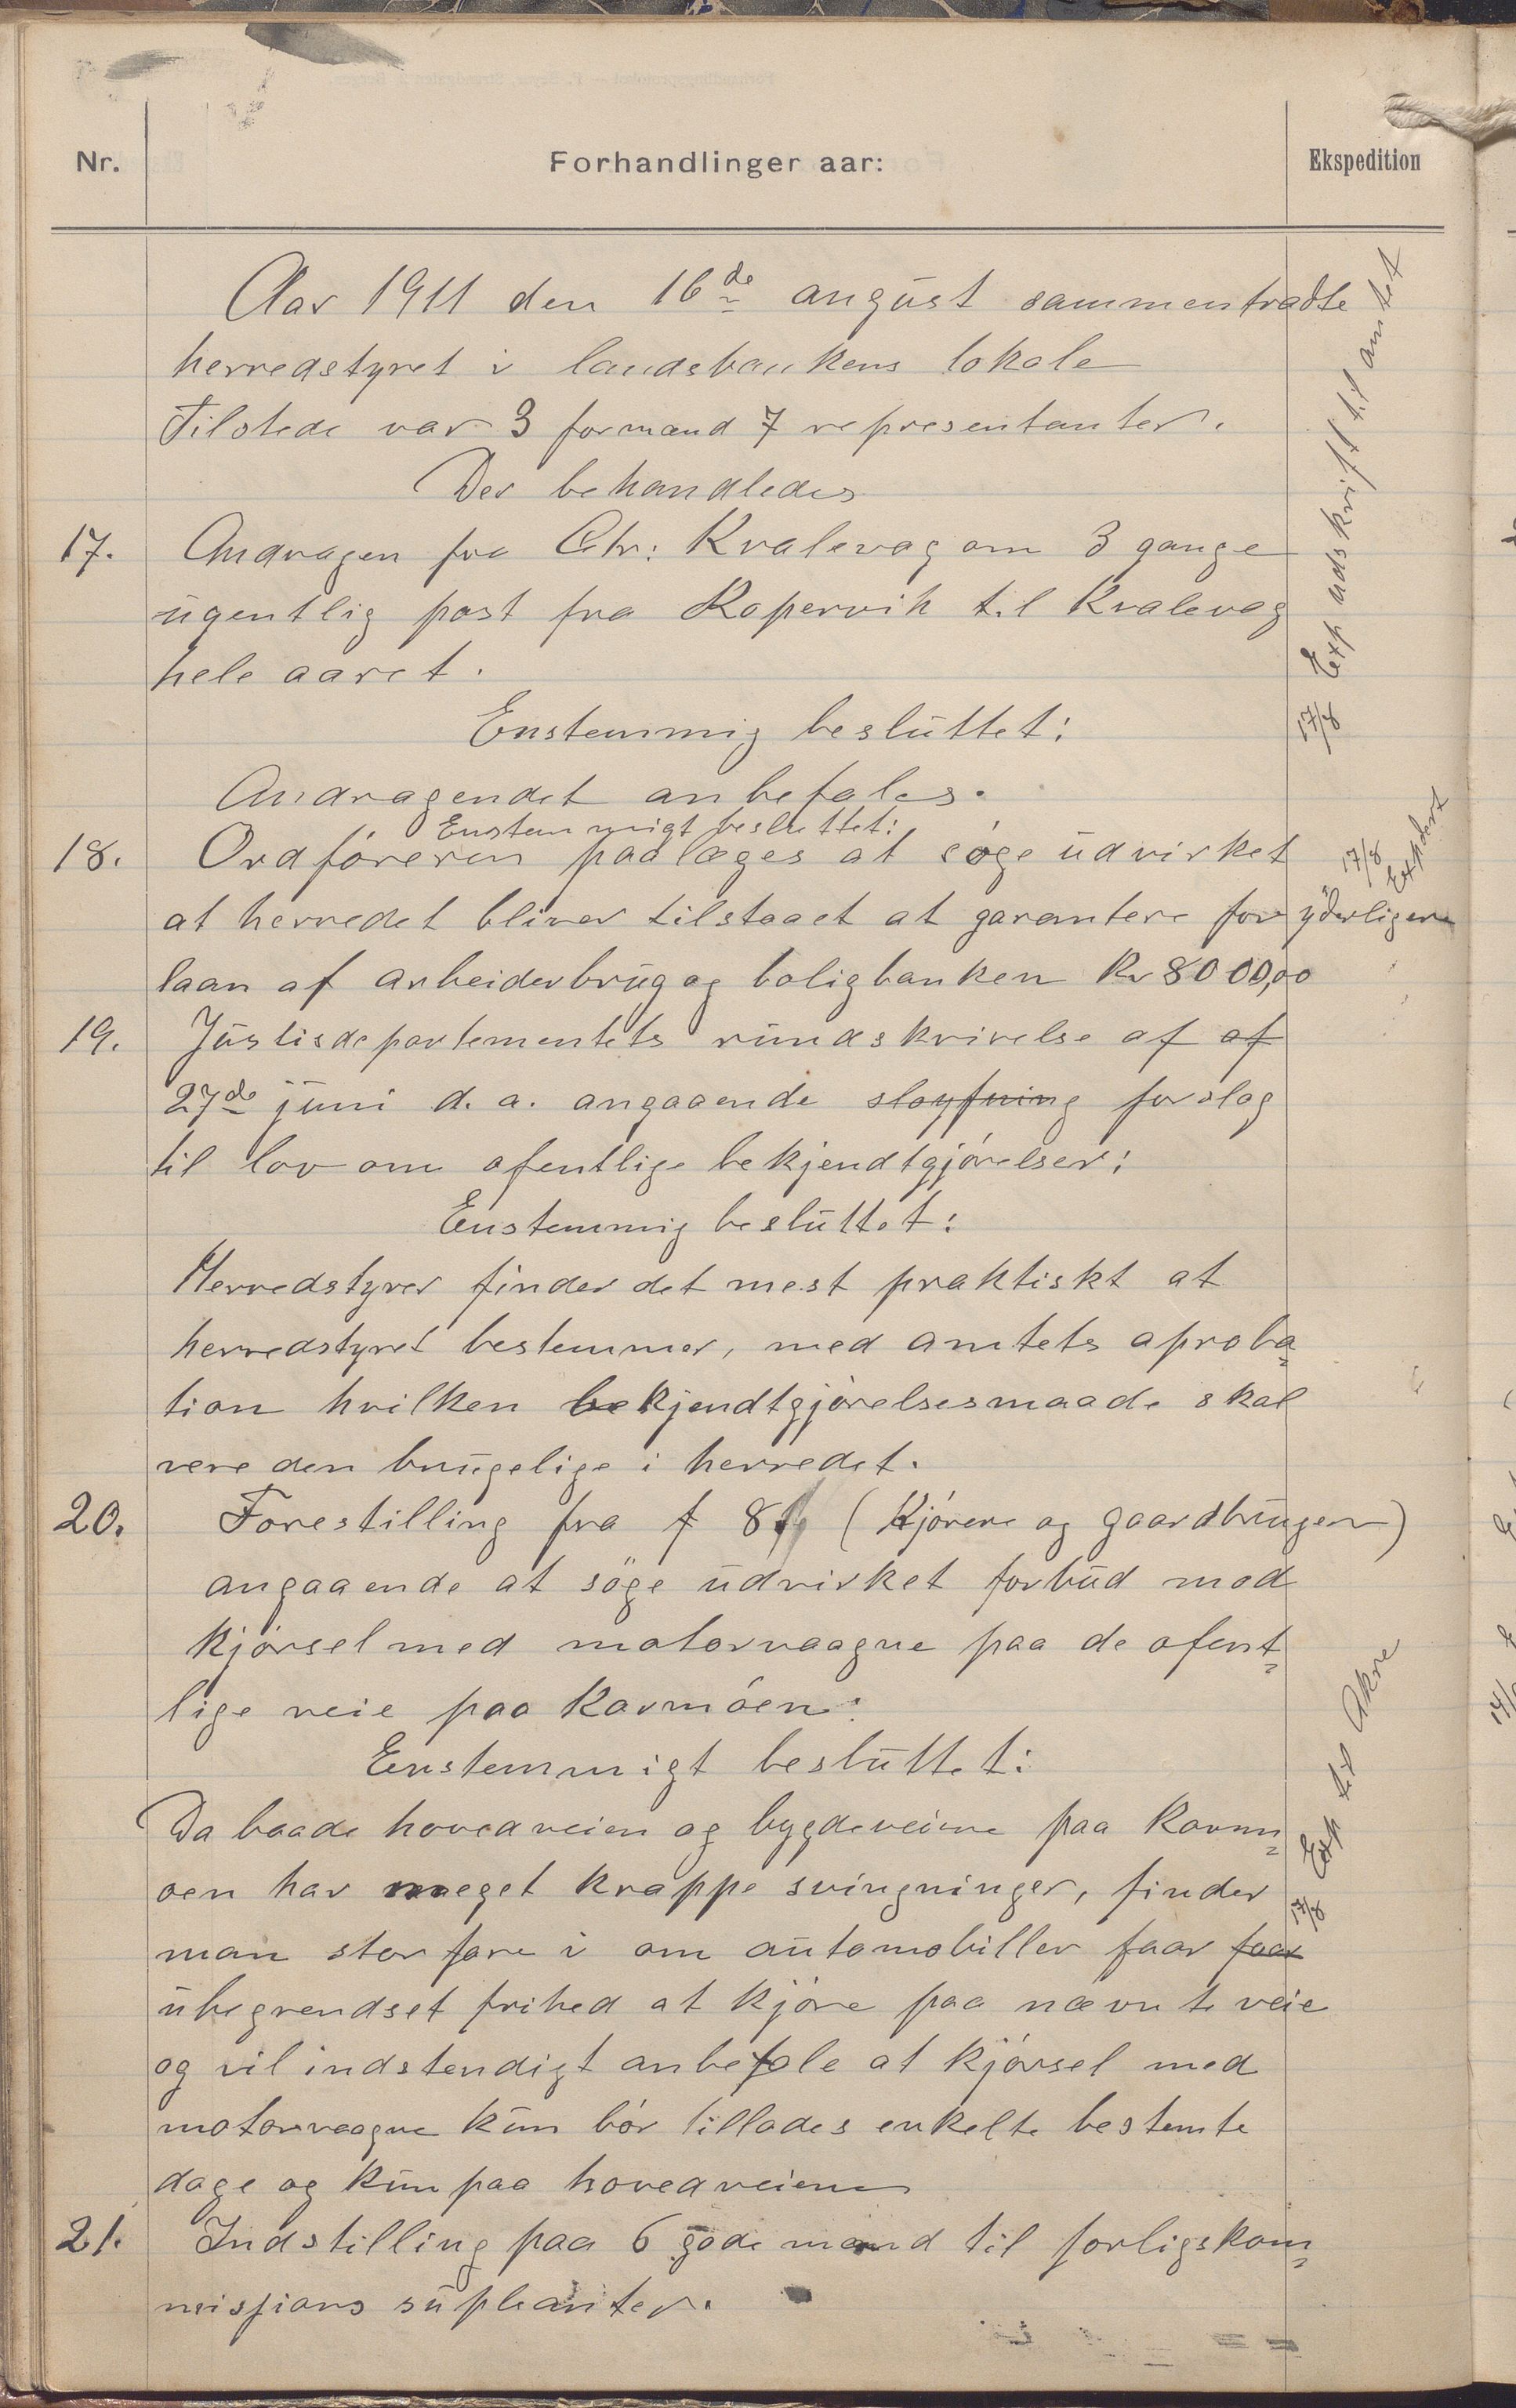 Nr.
Forhandlinger aar:
Ekspedition
Aar 1911 den 16de august sammentradte
herredstyret i landsbankens lokale
Tilstede var 3 formænd 7 representanter.
Der behandledes
17. Andragen fra Chr: Kvalevag om 3 gange
ugentlig post fra Kopervik til Kvalevag
hele aaret.
Enstemmig besluttet:
Andragendet anbefales.
17/8 Exp udskrift til amtet
Enstemmigt besluttet:
18. Ordføreren paalæges at søge udvirket
at herredet bliver tilstaaet at garantere for yderligere
laan af arbeiderbrug og boligbanken Kr 8000,00
17/8 Expedert
19. Justisdepartementets rundskrivelse af af
27de juni d. a. angaaende sløyfning forslag
til lov om ofentlige bekjendtgjørelser:
Enstemmig besluttet:
Herredstyrer finder det mest praktiskt at
herredstyret bestemmer, med amtets aproba=
tion hvilken bekjendtgjørelsesmaade skal
vere den brugelige i herredet.
20. Forestilling fra f 81 (Kjørere og gaardbrugere)
angaaende at søge udvirket forbud mod
kjørsel med motorvaagne paa de ofent=
lige veie paa Karmøen:
Enstemmigt besluttet:
Da baade hovedveien og bygdeveiene paa Karm=
øen har meget krappe svingninger, finder
man stor fare i om automobiller faar faar
ubegrendset frihed at kjøre paa nævnte veie
og vil indstendigt anbefale at kjørsel med
motorvaagne kun bør tillades enkelte bestemte
dage og kun paa hovedveiene
17/8 Exp til Akre
21. Indstilling paa 6 gode mænd til forligskom=
missions supleanter.